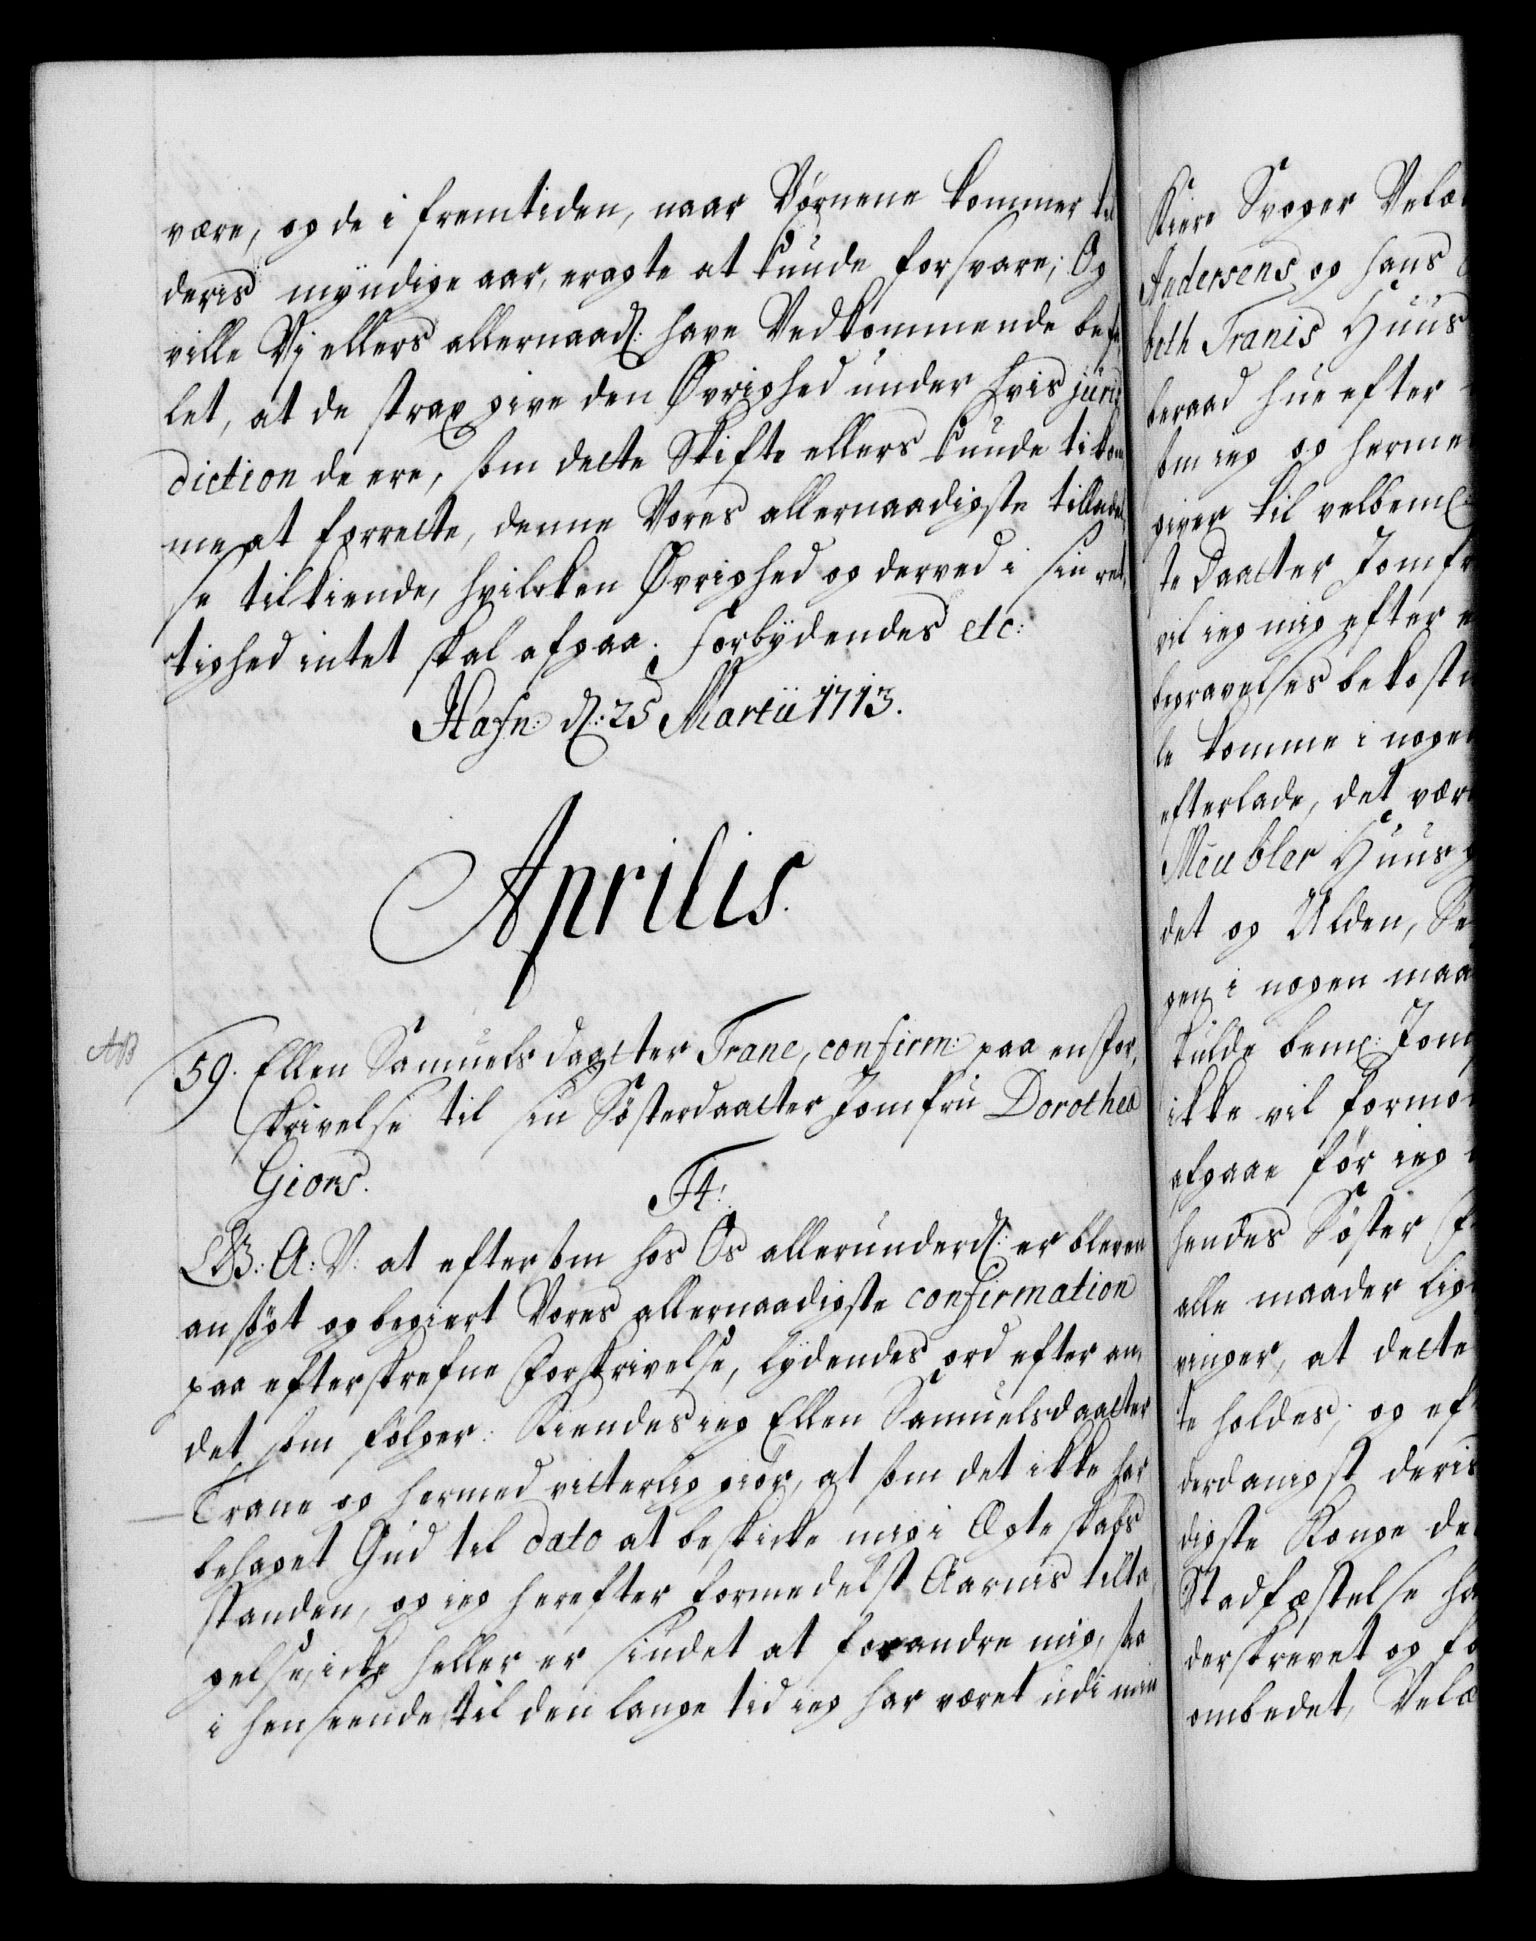 være, og de i fremtiden, naar Børnene kommer til
deris myndige aar, eragte at kunde forsvare; Og
ville Vi ellers allernaadˢ: have Vedkommende befa¬
let, at de strax give den Øvrighed under hvis juris¬
diction de ere, som dette Skifte ellers kunde tilkom¬
me at forrette, denne Vores allernaadigste tilladel¬
se tilkiende, hvilcken Øvrighed og derved i sin ret¬
tighed intet skal afgaa. Forbÿdendes etc:
Hafn: d: 25 Martii 1713.
Aprilis.
AB
59. Ellen Samuelsdaatter Trane, confirm: paa en For¬
skrivelse til sin Søsterdaatter Jomfru Dorothea
Giors.
F4:
G.B: A: V: at eftersom hos Os allerunderdˢ: er bleven
ansøgt og begiert Vores allernaadigste confirmation
paa efterskrefne Forskrivelse, lydendes ord efter an¬
det som følger: Kiendes ieg Ellen Samuelsdaatter
Trane og hermed vitterlig giør, at som det ikke har
behaget Gud til dato at beskicke mig i Ægteskabs
standen, og ieg herefter formedelst Aarnis tilta¬
gelse, icke heller er sindet at forandre mig, saa
i henseende til den lange tid ieg har været udi min
Kiere Svoger Velæ
Andersens og hans
beth Tranis Huus
beraad hue efter
som ieg og herme
giver til velbemᵗᵉ:
te Daatter Jomfr
vil ieg mig efter
begravelses bekostn
le komme i noge
efterlade, det vær
Meubler Huus g
det og Ulden, Se
gen i nogen maa
kulde bemᵗᵉ: Jom
ikke vil formo
afgaae før ieg
hendes Søster
alle maader lig
vinger, at dette
te holdes; og ef
derdanigst deris
digste Konge de
Stadfæstelse ha
derskrevet og fo
ombedet, Velæ